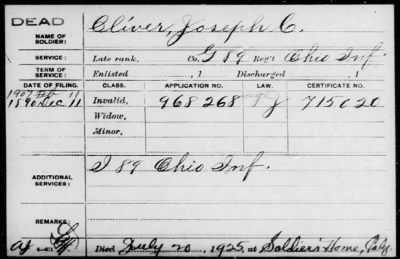 DEAD
NAME OF SOLDIER: Oliver, Joseph C.
SERVICE: Late rank, Co. G 89 Reg't Ohio Inf.
TERM OF SERVICE: Enlisted , 1 Discharged , 1
DATE OF FILING. CLASS. APPLICATION NO. LAW. CERTIFICATE NO.
1890 Dec 11 Invalid, 968268 715020
Widow,
Minor,
ADDITIONAL SERVICES: I 89 Ohio Inf.
REMARKS:
Died July 20, 1925, at Soldier's Home, Calif